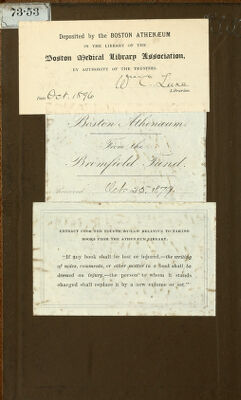 73.53
Deposited by the BOSTON ATHENÆUM
IN THE LIBRARY OF THE
Boston Medical Library Association,
BY AUTHORITY OF THE TRUSTEES
Librarian
Oct. 1896
Boston Athenæum.
From the
Bromfield Fund.
Received Oct. 25. 1879.
EXTRACT FROM THE
BOOKS FROM THE ATHENÆUM LIBRARY.
"If any book shall be lost or injured,—the writing
of notes, comments, or other matter in a book shall be
deemed an injury,—the person to whom it stands
charged shall replace it by a new volume or set."